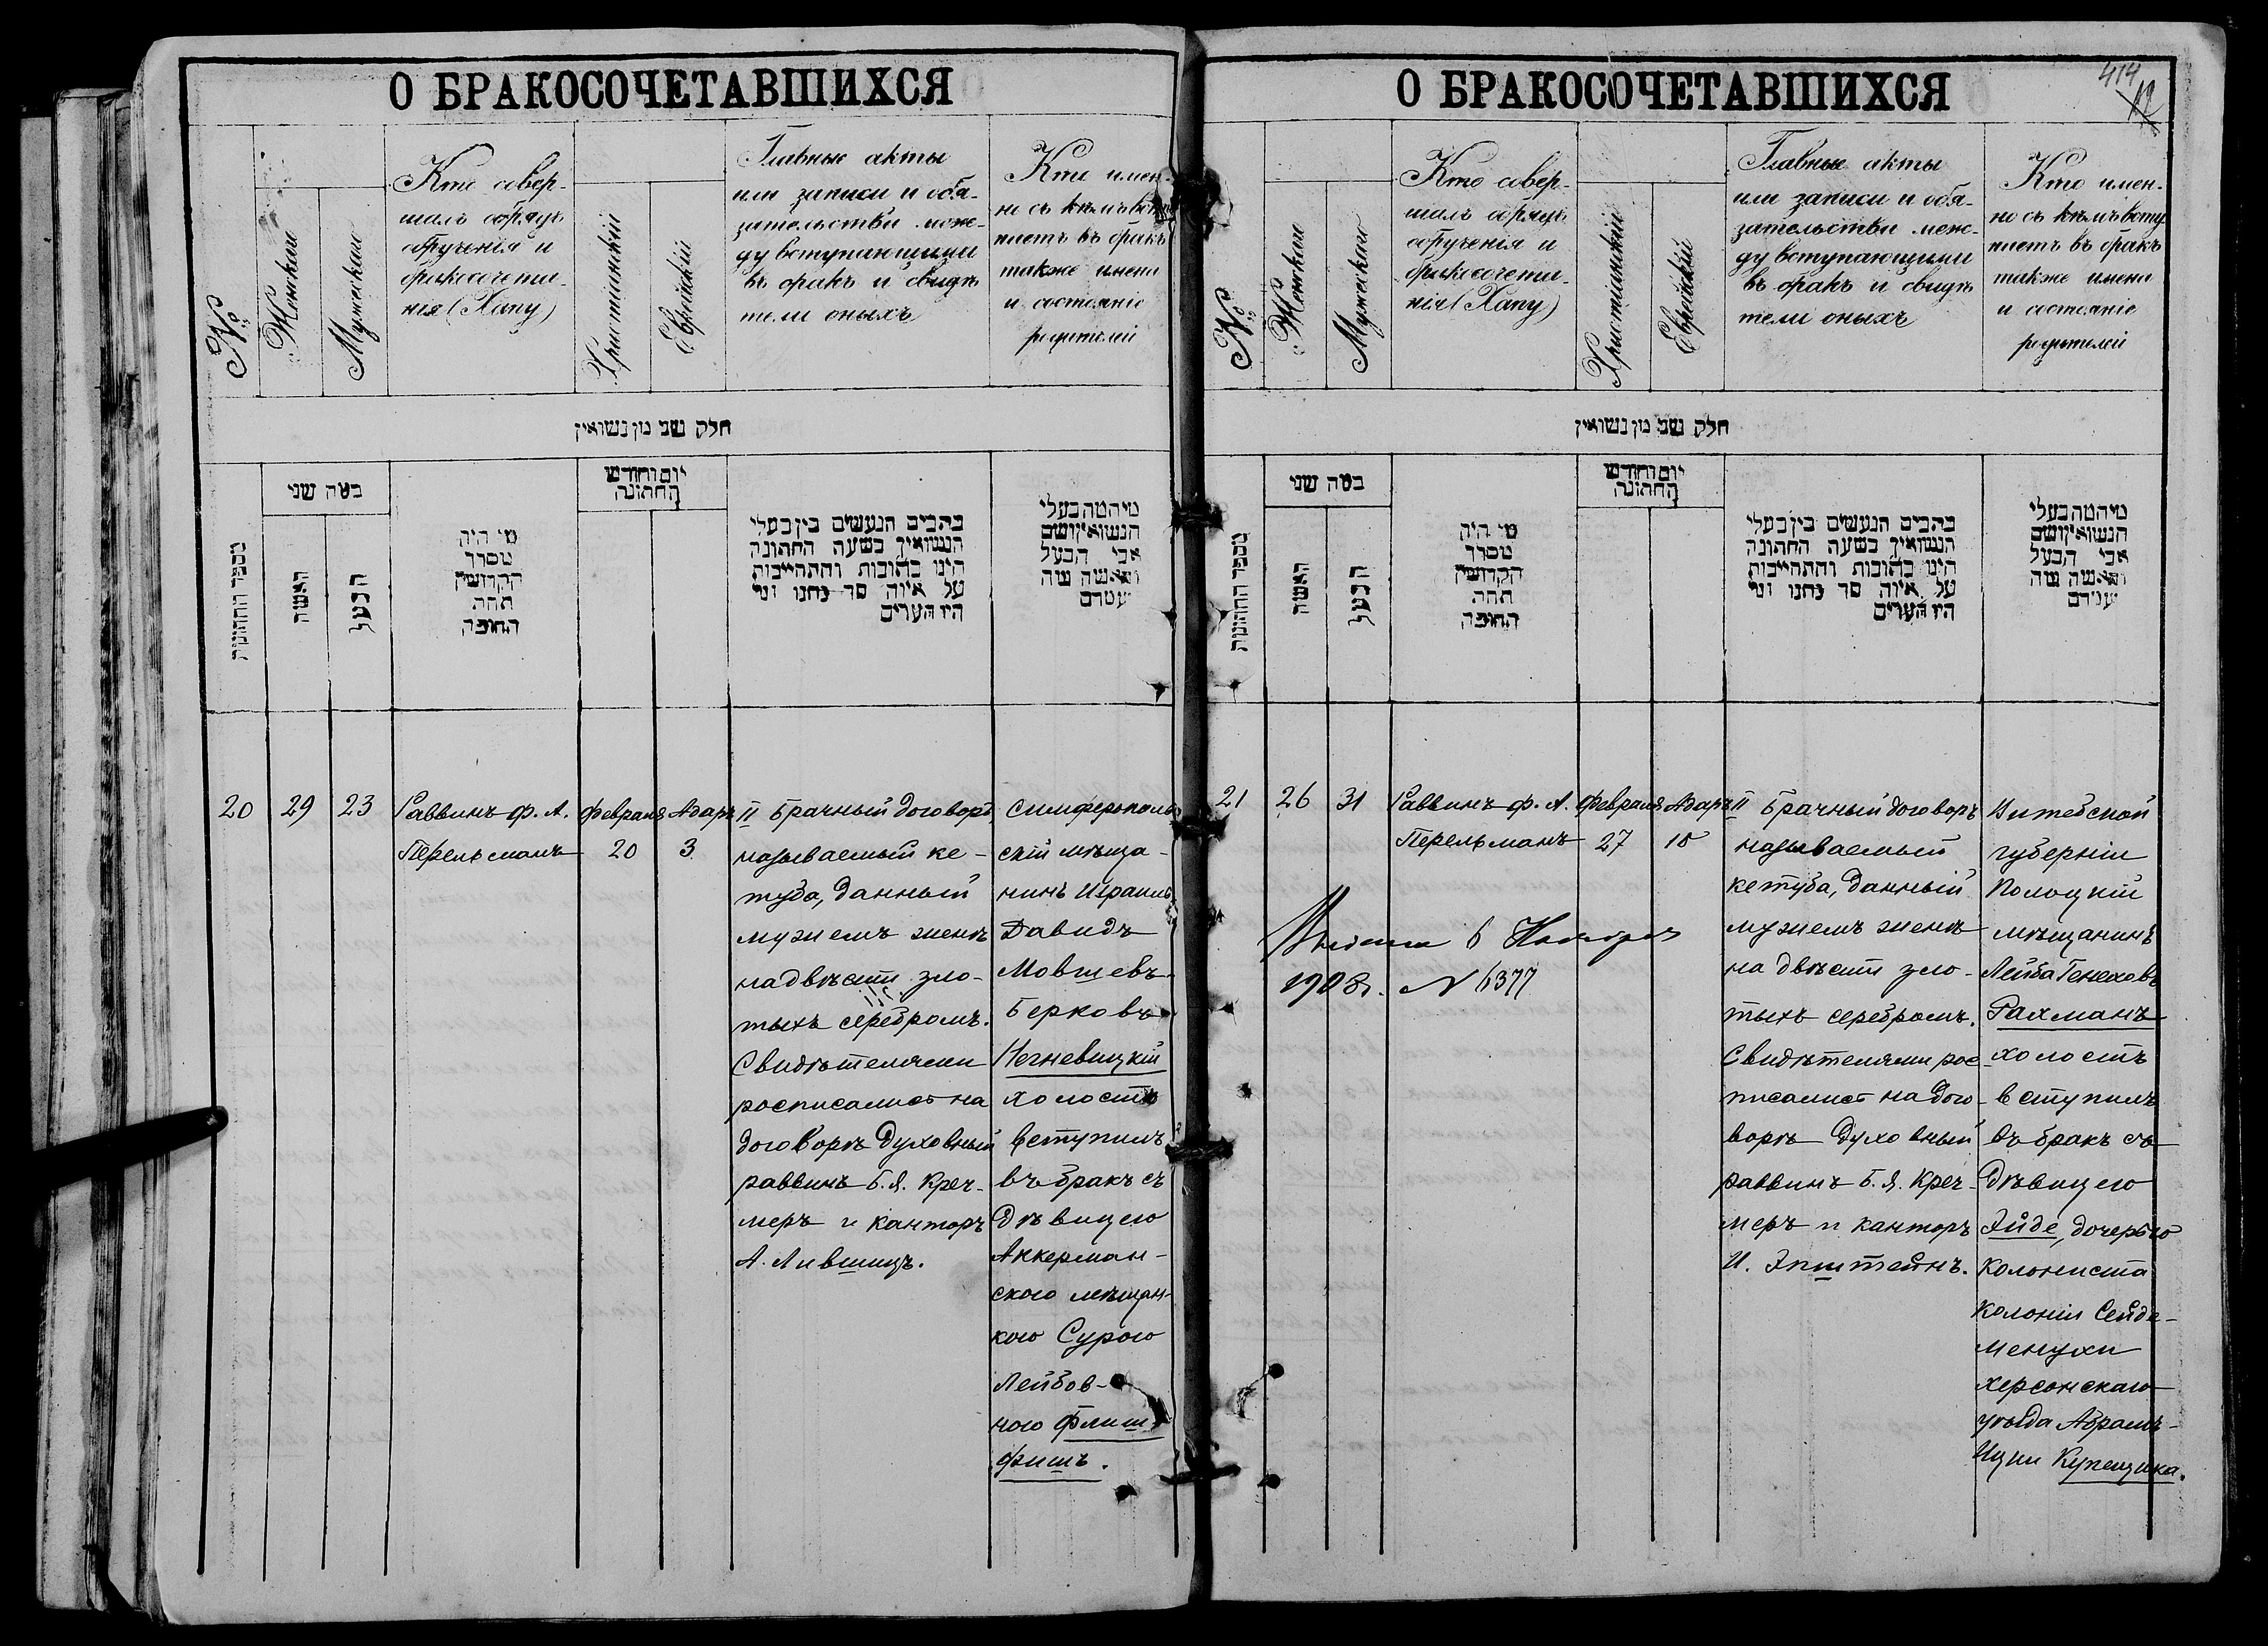 О БРАКОСОЧЕТАВШИХСЯ
№
Женскаго
Мужескаго
Кто совер-
шалъ обрядъ
обрученія и
бракосочета-
нія (Хапу)
Христіанскій
Еврейскій
Главные акты
или записи и обя-
зательства меж-
ду вступающими
въ бракъ и свидѣ
тели оныхъ
Кто имен-
но съ кѣмъ всту
паетъ въ бракъ
также имена
и состояніе
родителей
חלק שני מן נשואין
מספר החתונות
כמה שני
האשה
הבעל
מי היה
מסדר
הקדושין
תחת
החופה
יום וחודש
החתונה
הנעשים בין בעלי
הנשואין בשעה החתונה
הינו כתובות והתחייבות
על איזה סך
אבי הבעל
20
29
23
Раввинъ Ф. А.
Перельманъ
Февраля
20
Адаръ II
3
Брачный договоръ,
называемый ке-
туба, данный
мужемъ женѣ
на двѣсти зло-
тыхъ серебромъ.
Свидѣтелями
росписались на
договорѣ духовный
раввинъ Б. Я. Креч-
меръ и канторъ
А. Лившицъ.
Симферополь
скій мѣща-
нинъ Израиль
Давидъ
Мовшевъ-
Берковъ
Негневицкій
холостъ
вступилъ
въ бракъ съ
дѣвицею
Аккерман-
скою мѣщан-
кою Сурою
Лейбов-
ною Флиш-
фишъ.
О БРАКОСОЧЕТАВШИХСЯ
414
12
№
Женскаго
Мужескаго
Кто совер-
шалъ обрядъ
обрученія и
бракосочета-
нія (Хапу)
Христіанскій
Еврейскій
Главные акты
или записи и обя-
зательства меж-
ду вступающими
въ бракъ и свидѣ
тели оныхъ
Кто имен-
но съ кѣмъ всту
паетъ въ бракъ
также имена
и состояніе
родителей
חלק שני מן נשואין
מספר החתונות
כמה שני
האשה
הבעל
מי היה
מסדר
הקדושין
תחת
החופה
יום וחודש
החתונה
הנעשים בין בעלי
הנשואין בשעה החתונה
הינו כתובות והתחייבות
על איזה סך
אבי הבעל
21
26
31
Раввинъ Ф. А.
Перельманъ
Февраля
27
Адаръ II
10
6 Ноября
1908 г. N 6377
Брачный договоръ
называемый
кетуба, данный
мужемъ женѣ
на двѣсти зло-
тыхъ серебромъ.
Свидѣтелями рос-
писались на дого-
ворѣ духовный
раввинъ Б. Я. Креч-
меръ и канторъ
И. Эпштейнъ.
Витебской
губерніи
Полоцкій
мѣщанинъ
Лейба Генеховъ
Рахманъ
холостъ
вступилъ
въ бракъ съ
дѣвицею
Эйде, дочерью
колониста
колоніи Сейде-
менухи
Херсонскаго
уѣзда Абрамъ-
Ицки Купещика.